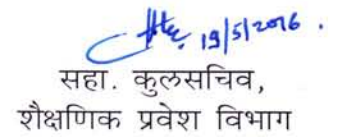 19/5/2016.
सहा. कुलसचिव,
शैक्षणिक प्रवेश विभाग